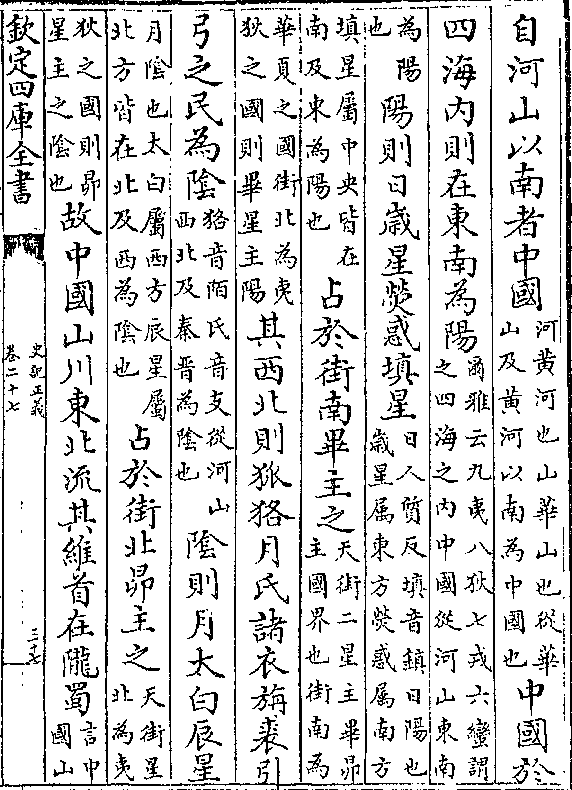 自河山以南者中國河黃河也山華山也從華山及黃河以南為中國也中國於
四海內則在東南為陽爾雅云九夷八狄七戎六蠻謂之四海之內中國從河山東南
為陽也陽則日歲星熒惑填星日人質反填音鎮日陽也歲星属東方熒惑属南方
填星屬中央皆在南及東為陽也占於街南畢主之天街二星主畢昴主國界也街南為
華夏之國街北為夷狄之國則畢星主陽其西北則狐狢月氏諸衣旃裘引
弓之民為陰狢音陌氏音支從河山西北及秦晉為陰也陰則月太白辰星
月陰也太白屬西方辰星屬北方皆在北及西為陰也占於街北昴主之天街星北為夷
狄之國則昴星主之陰也故中國山川東北流其維首在隴蜀言中國山
欽定四庫全書
史記正義
卷二十七
三十七